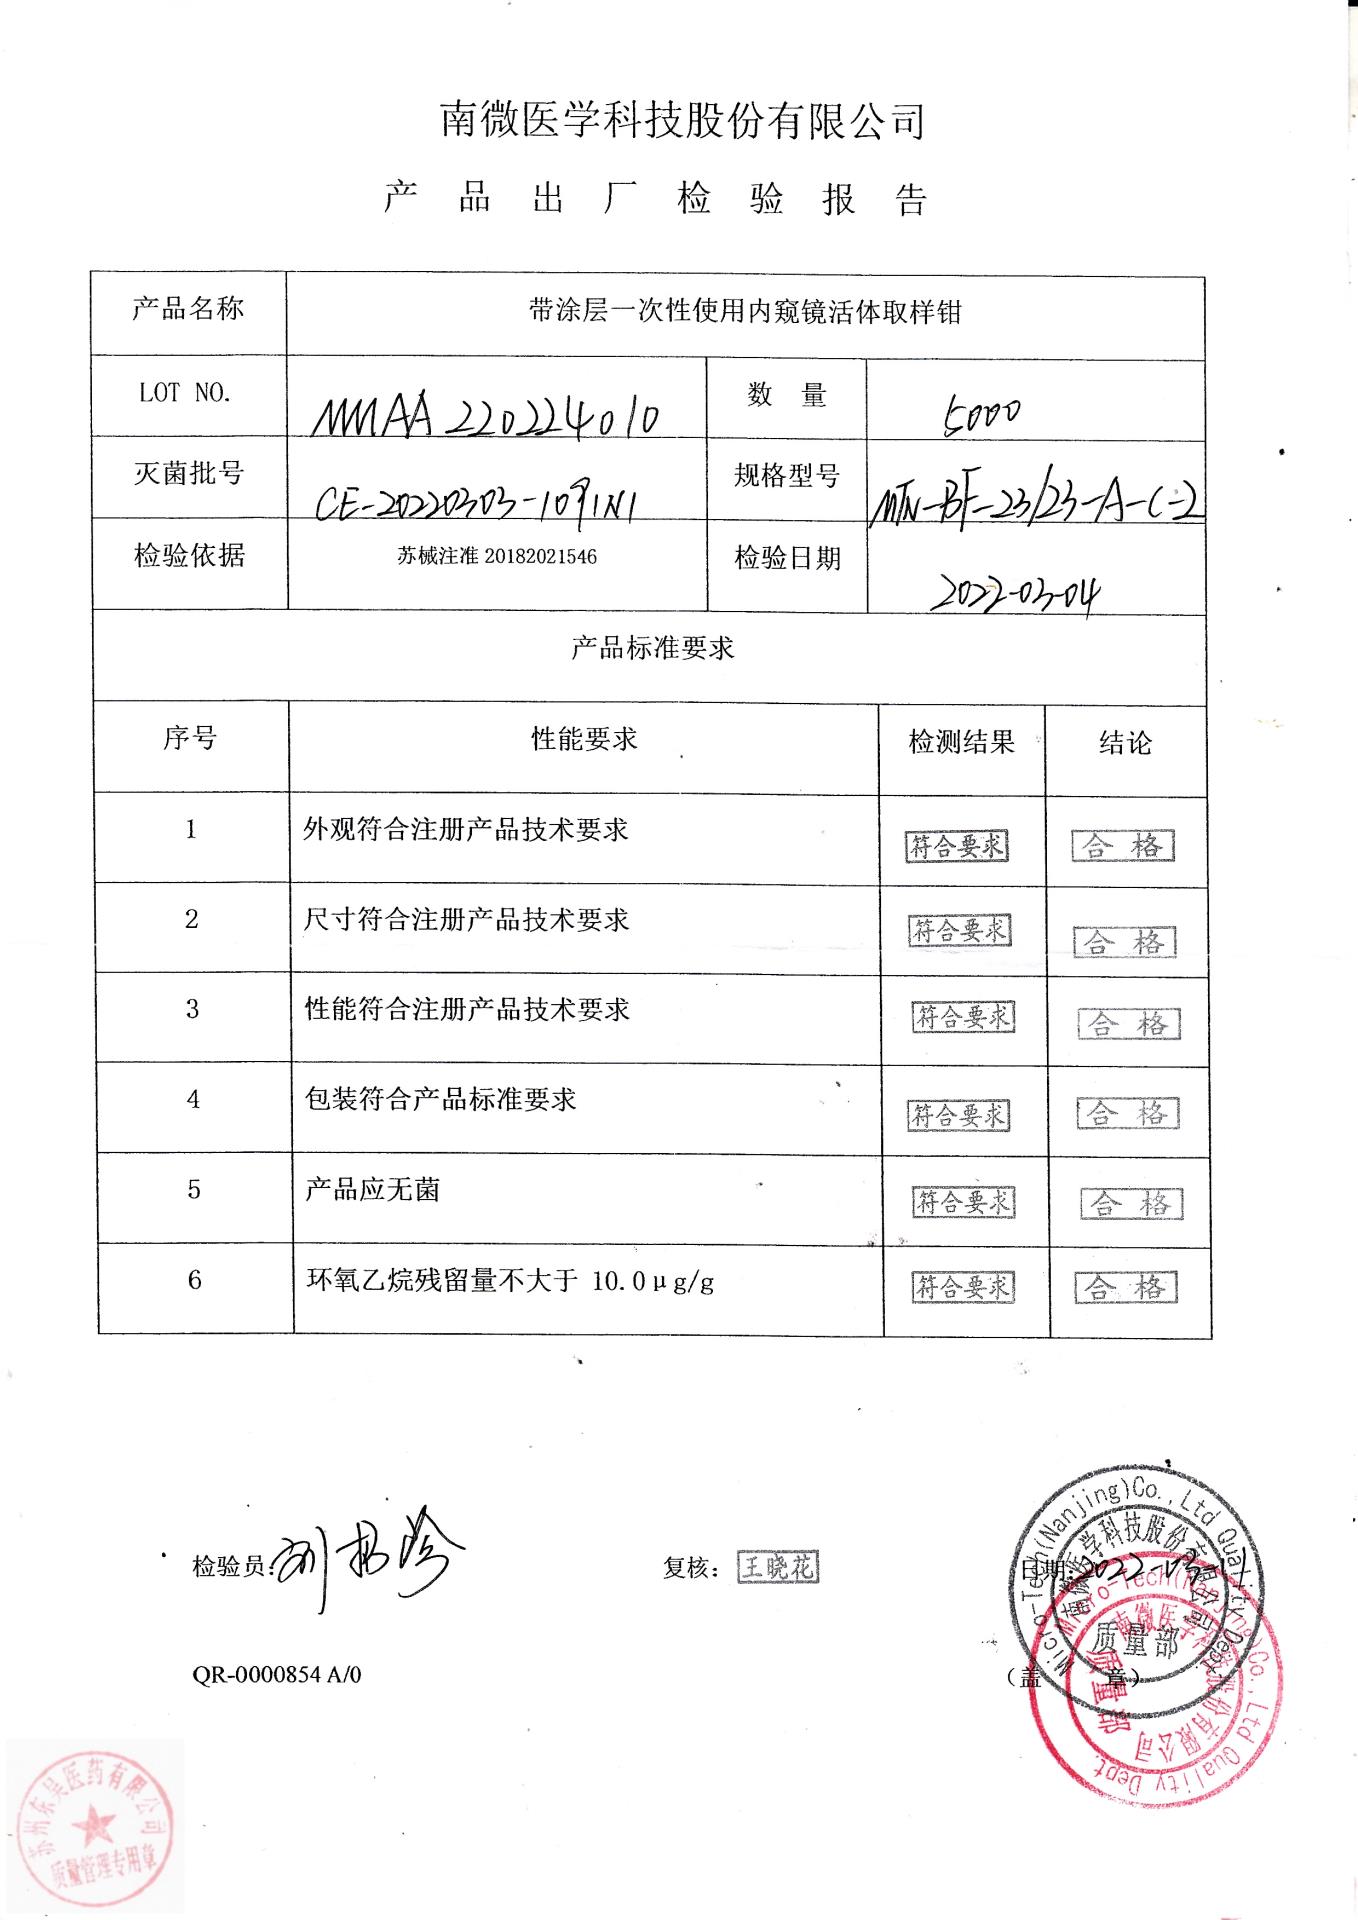 南微医学科技股份有限公司
产品出厂检验报告
产品名称 带涂层一次性使用内窥镜活体取样钳
LOT NO. MMAA220224010 数 量 5000
灭菌批号 CE-20220303-1091N1 规格型号 MTN-BF-23/23-A-C-2
检验依据 苏械注准 20182021546 检验日期 2022-03-04
产品标准要求
序号 性能要求 检测结果 结论
1 外观符合注册产品技术要求 符合要求 合格
2 尺寸符合注册产品技术要求 符合要求 合格
3 性能符合注册产品技术要求 符合要求 合格
4 包装符合产品标准要求 符合要求 合格
5 产品应无菌 符合要求 合格
6 环氧乙烷残留量不大于 10.0μg/g 符合要求 合格
检验员: 刘 复核: 王晓花 日期: 2022-03-11
QR-0000854 A/0 (盖 章)
Micro-Tech(Nanjing)Co.,Ltd Quality Dept.
南微医学科技股份有限公司
质量部
Micro-Tech(Nanjing)Co.,Ltd Quality Dept.
南微医学科技股份有限公司
质量部
苏州东吴医药有限公司
质量管理专用章